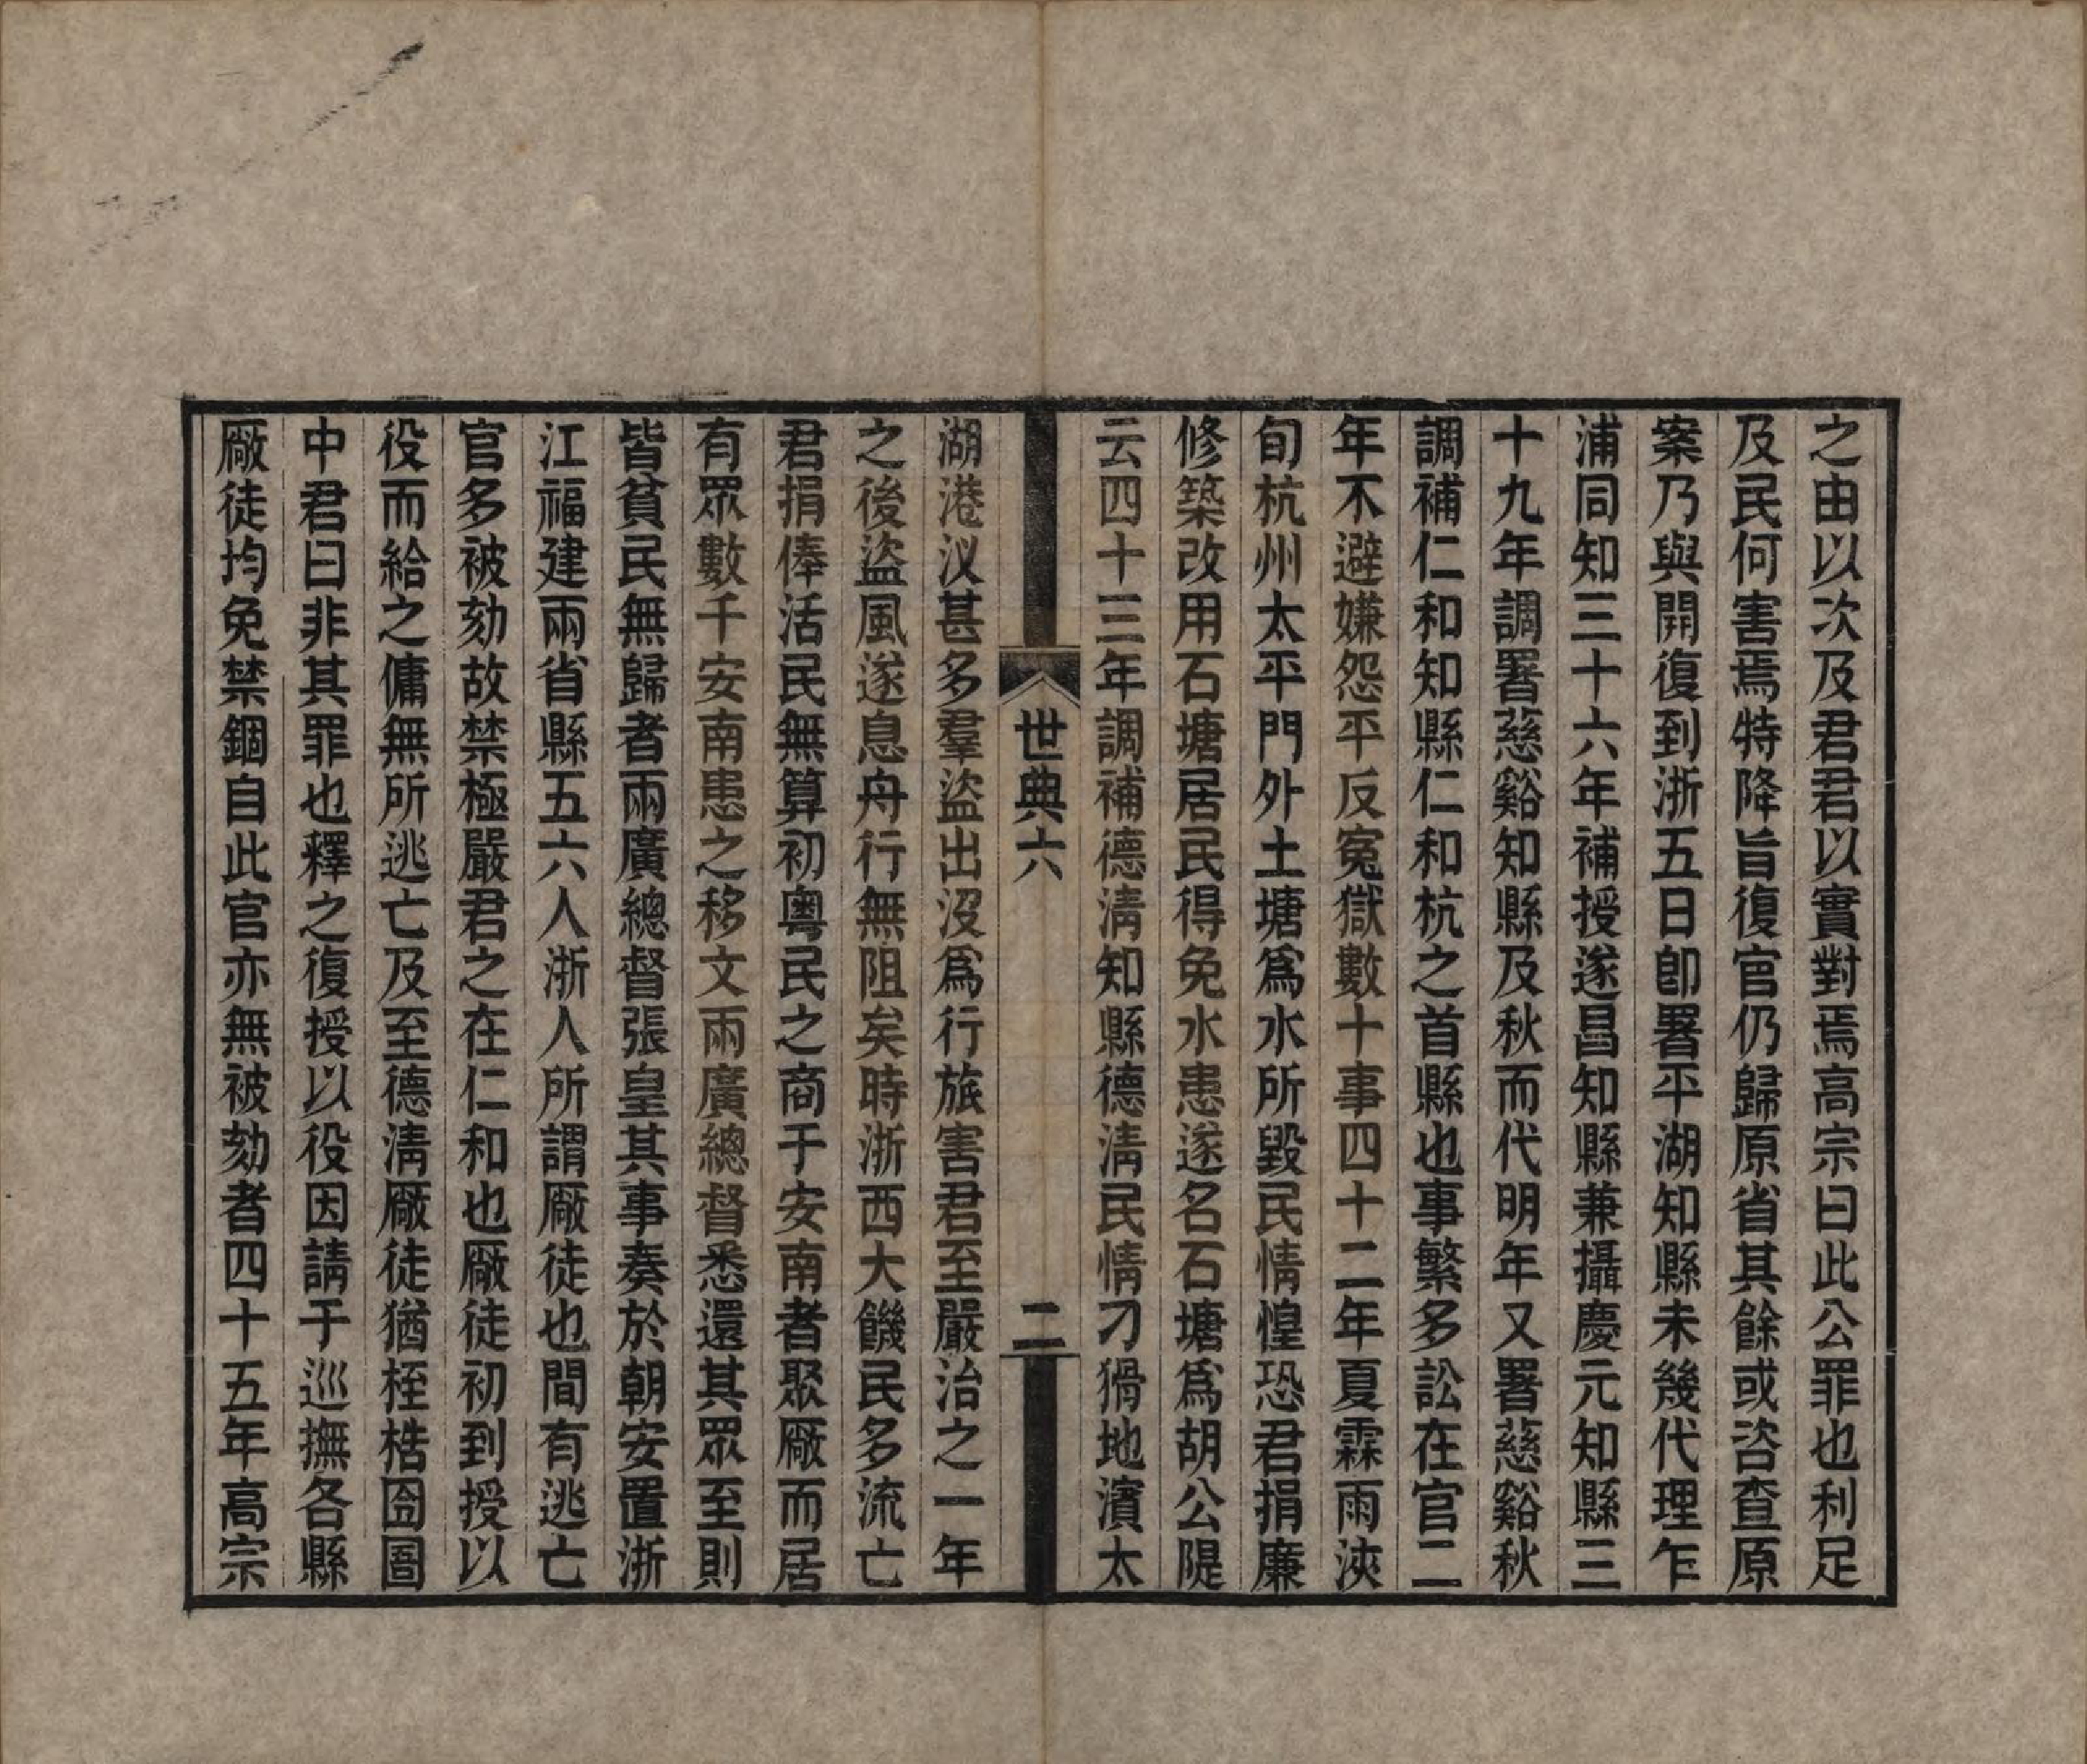 之由以次及君君以實對焉高宗曰此公罪也利足
及民何害焉特降旨復官仍歸原省其餘或咨查原
案乃與開復到浙五日卽署平湖知縣未幾代理乍
浦同知三十六年補授遂昌知縣兼攝慶元知縣三
十九年調署慈谿知縣及秋而代明年又署慈谿秋
調補仁和知縣仁和杭之首縣也事繁多訟在官二
年不避嫌怨平反寃獄數十事四十二年夏霖雨浹
旬杭州太平門外土塘爲水所毀民情惶恐君捐廉
修築改用石塘居民得免水患遂名石塘爲胡公隄
云四十三年調補德淸知縣德淸民情刁猾地濱太
世典六
二
湖港汊甚多羣盜出沒爲行旅害君至嚴治之一年
之後盜風遂息舟行無阻矣時浙西大饑民多流亡
君捐俸活民無算初粵民之商于安南者聚厰而居
有眾數千安南患之移文兩廣總督悉還其眾至則
皆貧民無歸者兩廣總督張皇其事奏於朝安置浙
江福建兩省縣五六人浙人所謂厰徒也間有逃亡
官多被劾故禁極嚴君之在仁和也厰徒初到授以
役而給之傭無所逃亡及至德淸厰徒猶桎梏囹圄
中君曰非其罪也釋之復授以役因請于巡撫各縣
厰徒均免禁錮自此官亦無被劾者四十五年高宗